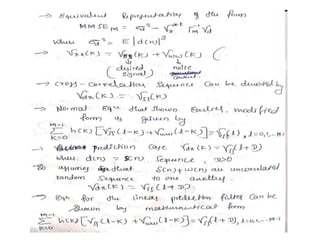 → Equivalent Representation of the form
MMSE_M = σ² - γ_d^{*t} Γ_M^{-1} γ_d
where σ² = E|d(n)|²
→ γ_xx(k) = γ_ss(k) + γ_ww(k) (
(desired signal) noise
→ cross-correlation sequence can be denoted by
γ_dx(k) = γ_ss(k)
→ Normal Eqn that shown Earlier, modified
form is given by
Σ_{k=0}^{M-1} h(k)[γ_ss(l-k) + γ_ww(l-k)] = γ_ss(l), l=0,1,..M-1
→ prediction case γ_dx(k) = γ_ss(l+D)
where d(n) = s(n) sequence,
so assume that s(n) + w(n) an uncorrelated
random sequence to one another.
γ_dx(k) = γ_ss(l+D)
→ Eqn for the linear prediction filter can be
shown by mathematical form
Σ_{k=0}^{M-1} h(k)[γ_ss(l-k) + γ_ww(l-k)] = γ_ss(l+D), l=0,1,..M-1